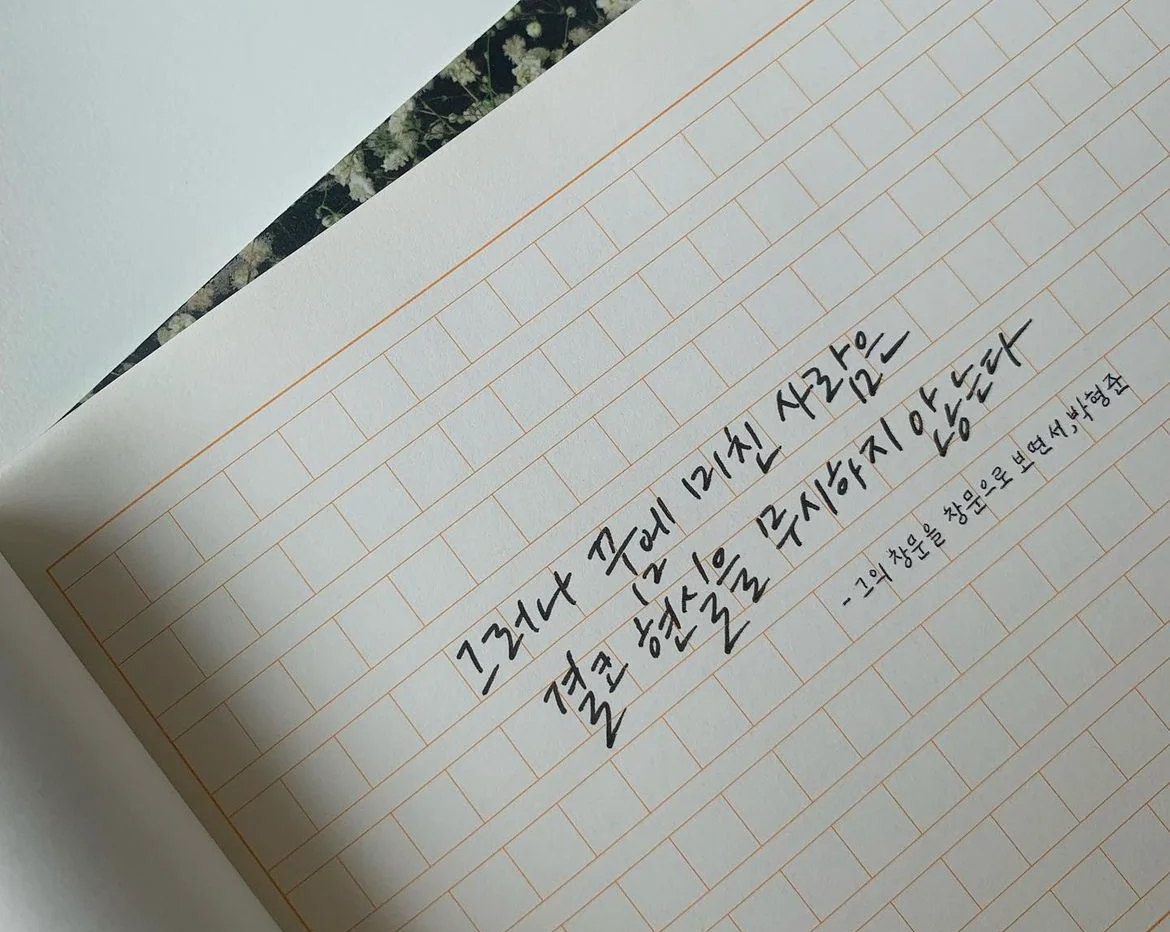 그러나 꿈에 미친 사람은
결코 현실을 무시하지 않는다
- 그의 창문을 창문으로 보면서, 박형준